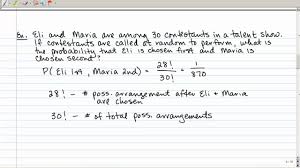 Ex. Eli and Maria are among 30 contestants in a talent show.
If contestants are called at random to perform, what is
the probability that Eli is chosen first and Maria is
chosen second?
P( Eli 1st , Maria 2nd) = 28! / 30! = 1 / 870
28! - # poss. arrangement after Eli + Maria
are chosen
30! - # of total poss. arrangements